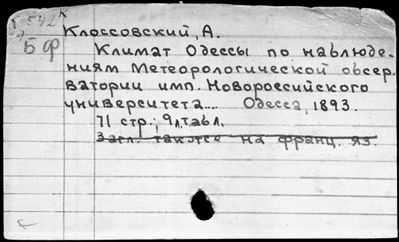 Клоссовский, А.
БФ
Климат Одессы по наблюде-
ниям Метеорологической обсер.
ватории имп. Новороссийского
университета.... Одесса, 1893.
71 стр.; 9л.табл.
Загл. также на франц. яз.